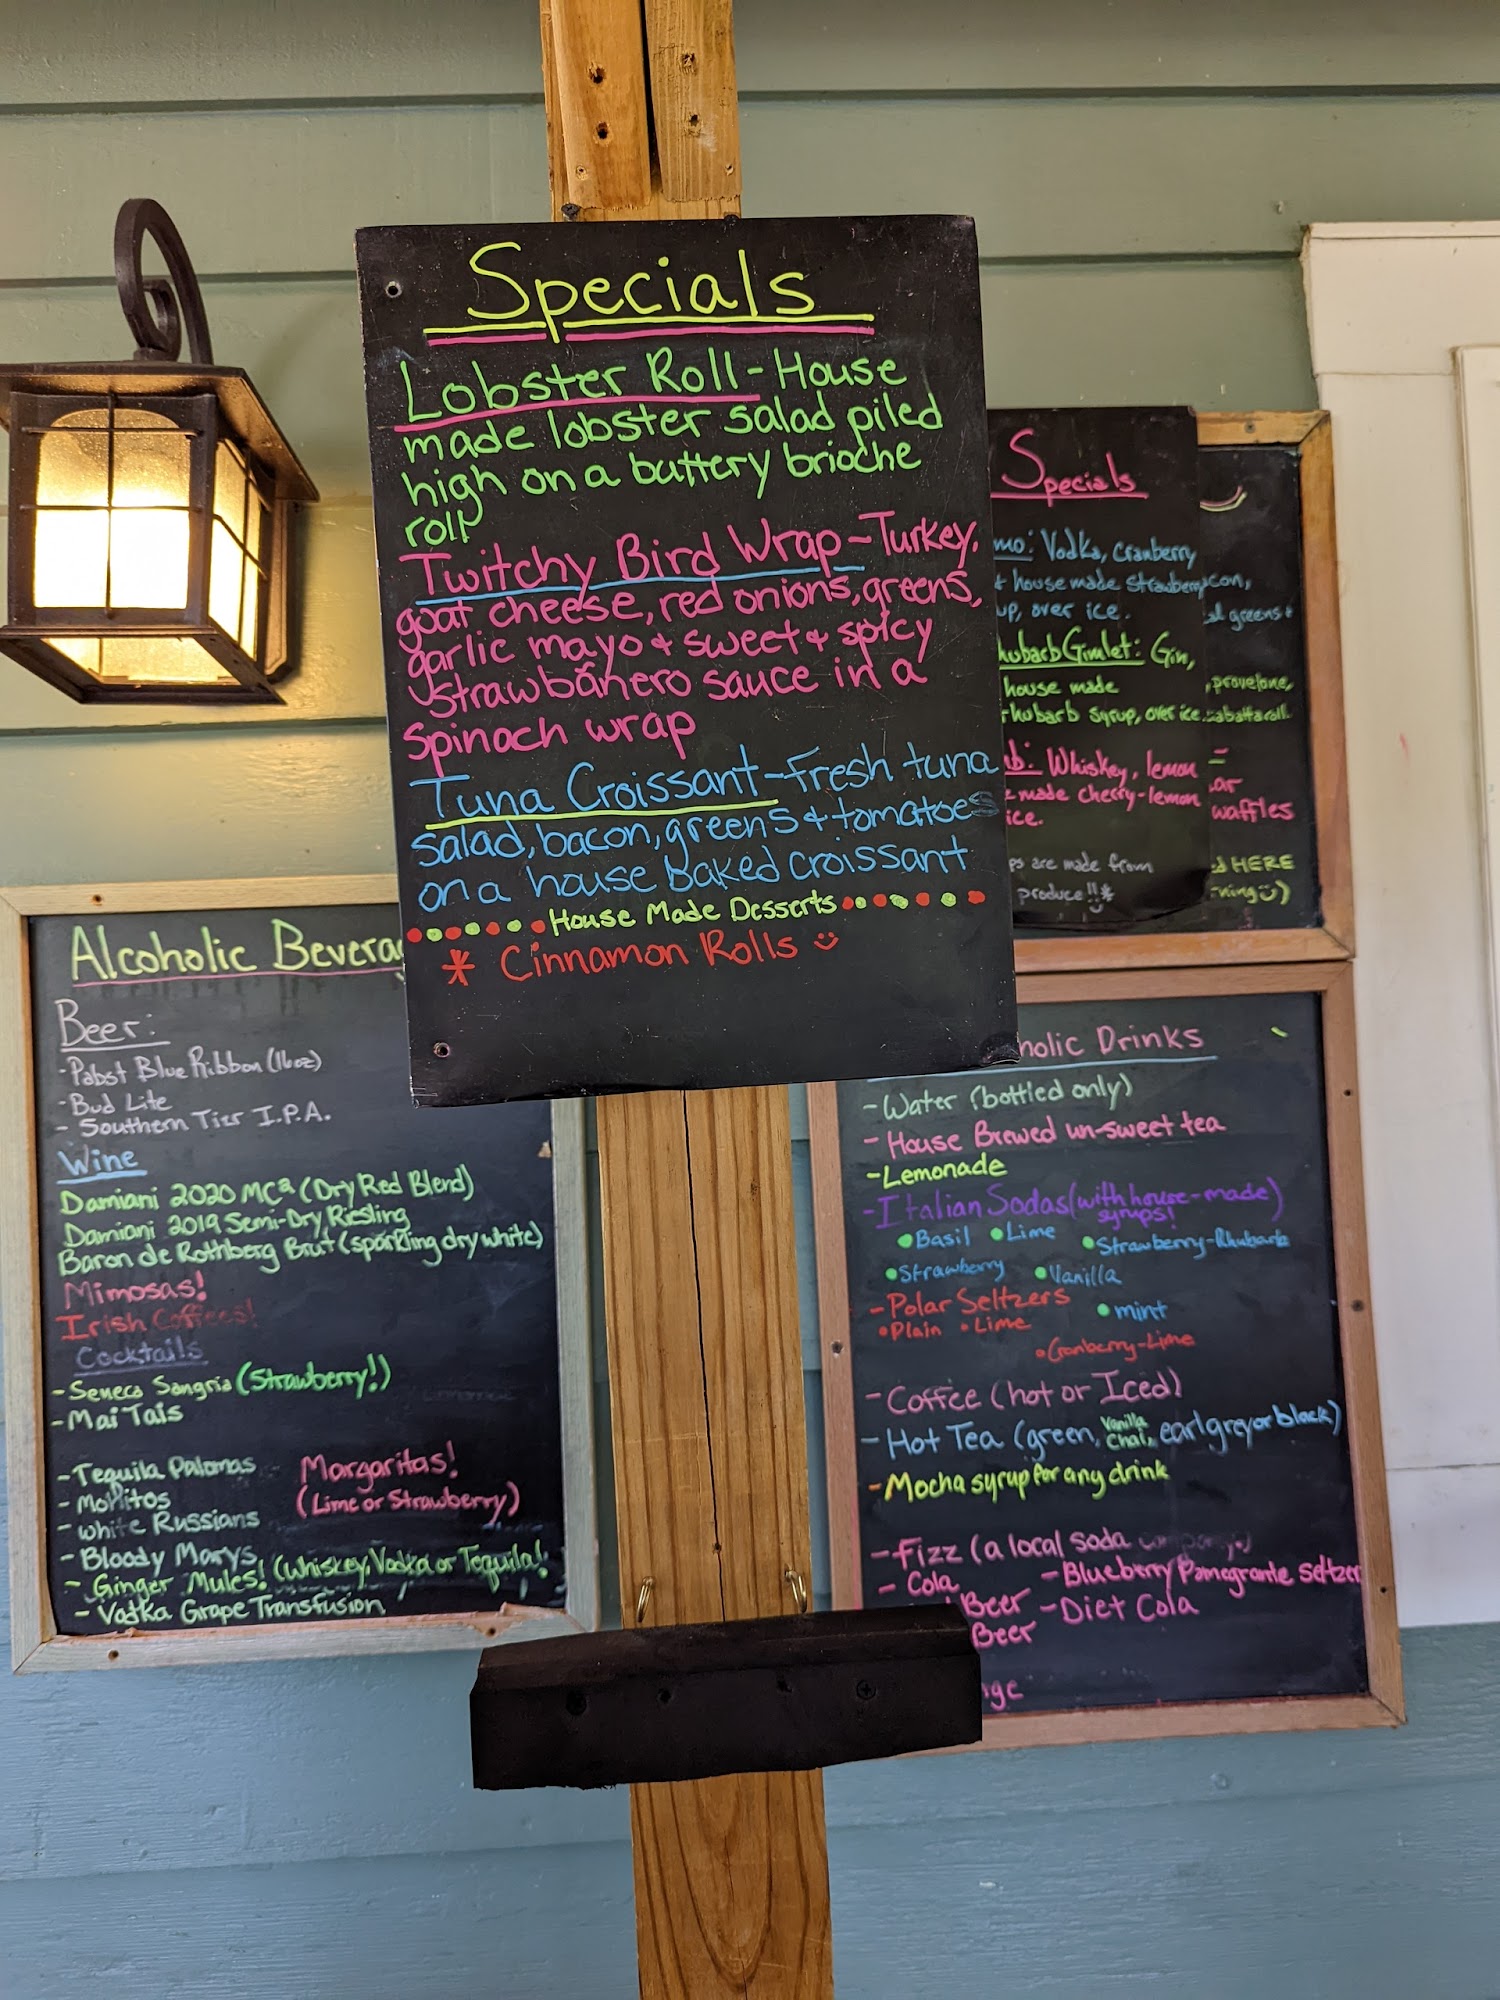 Specials
Lobster Roll - House
made lobster salad piled
high on a buttery brioche
roll
Twitchy Bird Wrap - Turkey,
goat cheese, red onions, greens,
garlic mayo & sweet & spicy
strawbañero sauce in a
spinach wrap
Tuna Croissant - fresh tuna
salad, bacon, greens & tomatoes
on a house baked croissant
House Made Desserts
* Cinnamon Rolls
Specials
mo: Vodka, cranberry
& house made strawberry
up, over ice.
hubarb Gimlet: Gin,
house made
rhubarb syrup, over ice.
Whiskey, lemon
made cherry-lemon
ice.
ps are made from
produce!!*
con,
al greens &
, provelone,
iabatta roll
ar
waffles
HERE
ning)
Alcoholic Bevera
Beer:
- Pabst Blue Ribbon (16oz)
- Bud Lite
- Southern Tier I.P.A.
Wine
Damiani 2020 MC² (Dry Red Blend)
Damiani 2019 Semi-Dry Riesling
Baron de Rothberg Brut (sparkling dry white)
Mimosas!
Irish Coffees!
Cocktails
- Seneca Sangria (Strawberry!)
- Mai Tais
- Tequila Palomas
- Mohitos
- White Russians
- Bloody Marys
- Ginger Mules! (Whiskey, Vodka or Tequila!)
- Vodka Grape Transfusion
Margaritas!
(Lime or Strawberry)
holic Drinks
- Water (bottled only)
- House Brewed un-sweet tea
- Lemonade
- Italian Sodas (with house-made syrups!)
• Basil • Lime • Strawberry-Rhubarb
• Strawberry • Vanilla
• mint
- Polar Seltzers
• Plain • Lime
• Cranberry-Lime
- Coffee (hot or Iced)
- Hot Tea (green, Vanilla Chai, earl grey or black)
- Mocha syrup for any drink
- Fizz (a local soda company!)
- Cola - Blueberry Pomegranate Seltzer
Beer - Diet Cola
Beer
nge